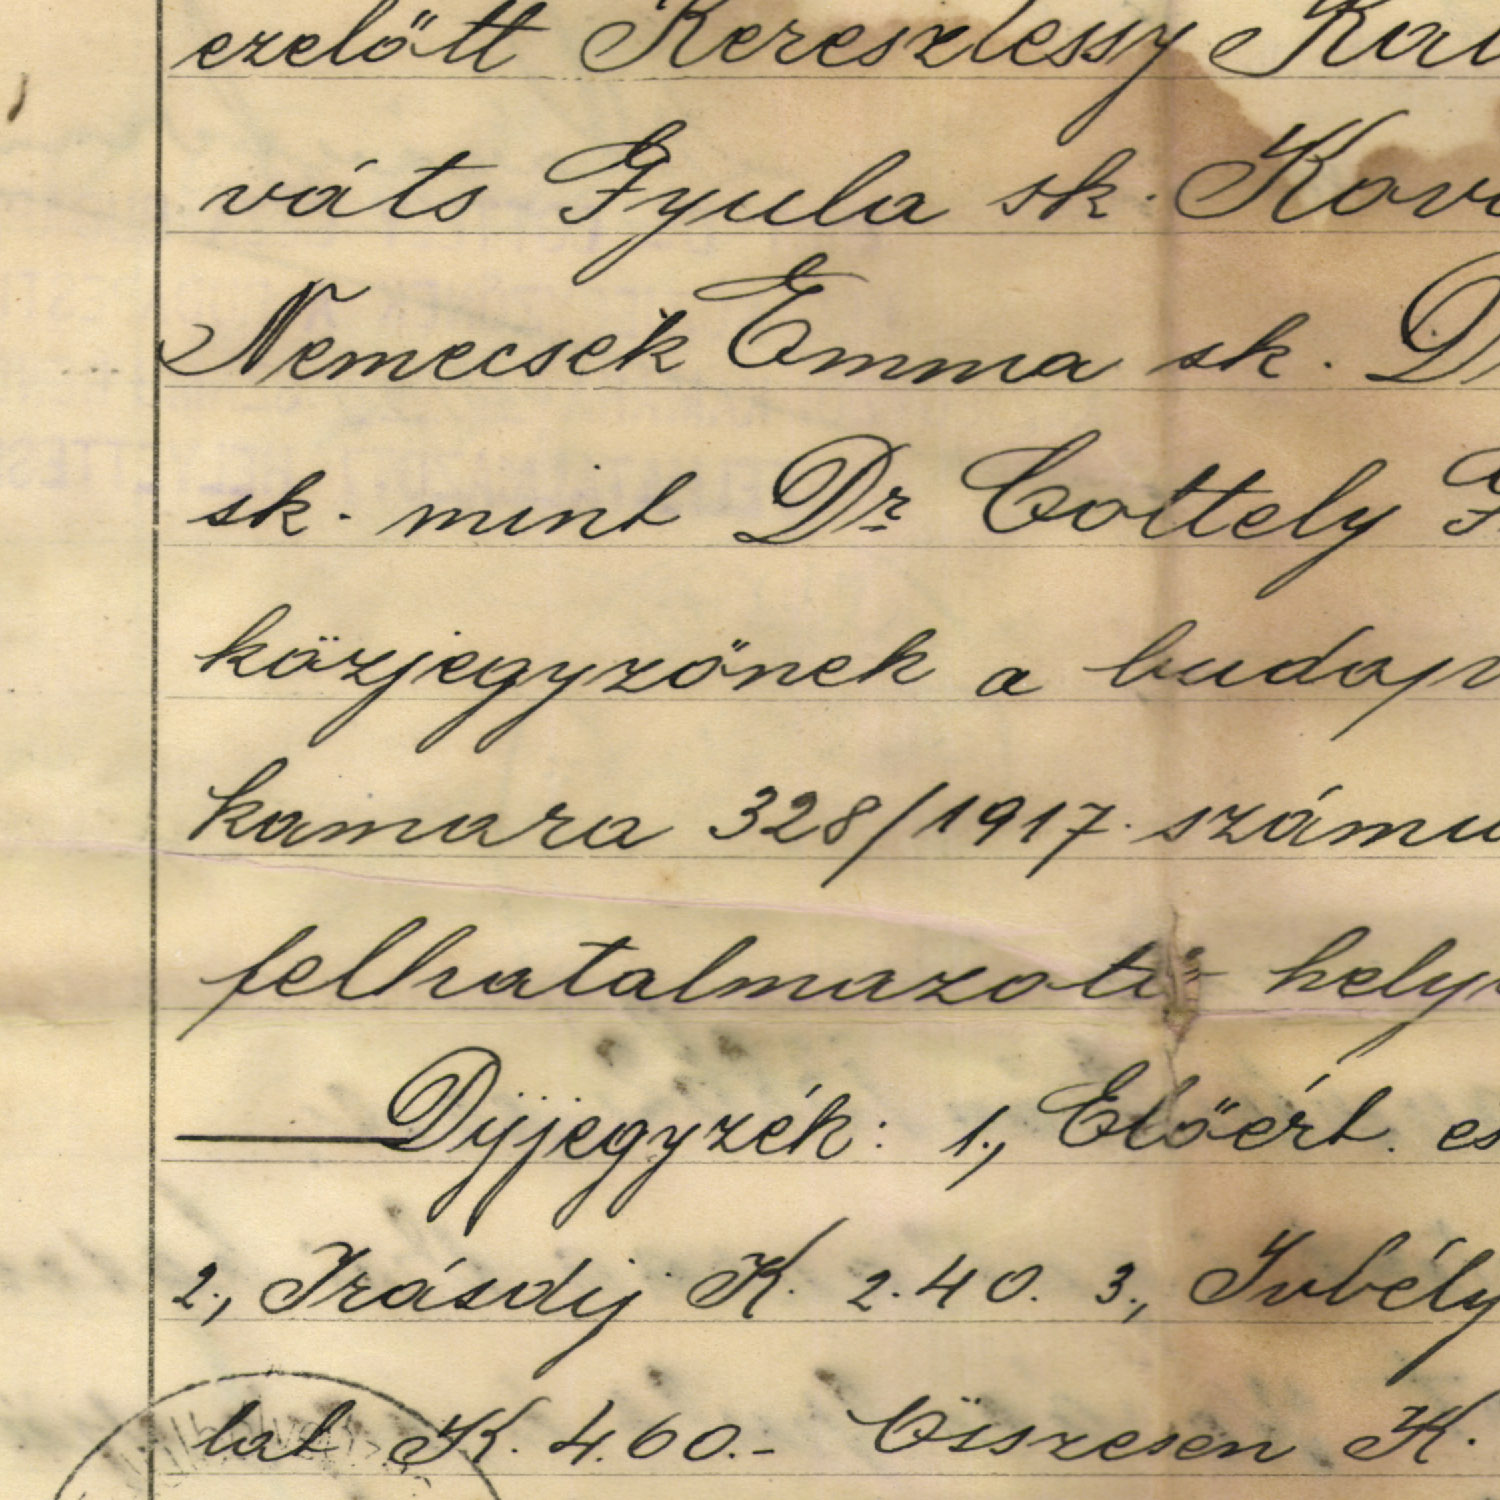 ezelőtt Keresztessy Kál
váts Gyula sk. Ková
Nemecsek Emma sk. D
sk. mint Dr Cottely
közjegyzőnek a budap
kamara 328/1917. számu
felhatalmazott hely
Dijjegyzék: 1., Előért. es
2., Irásdij K. 2.40. 3., Ivbély
bal K. 4.60.- Összesen K.